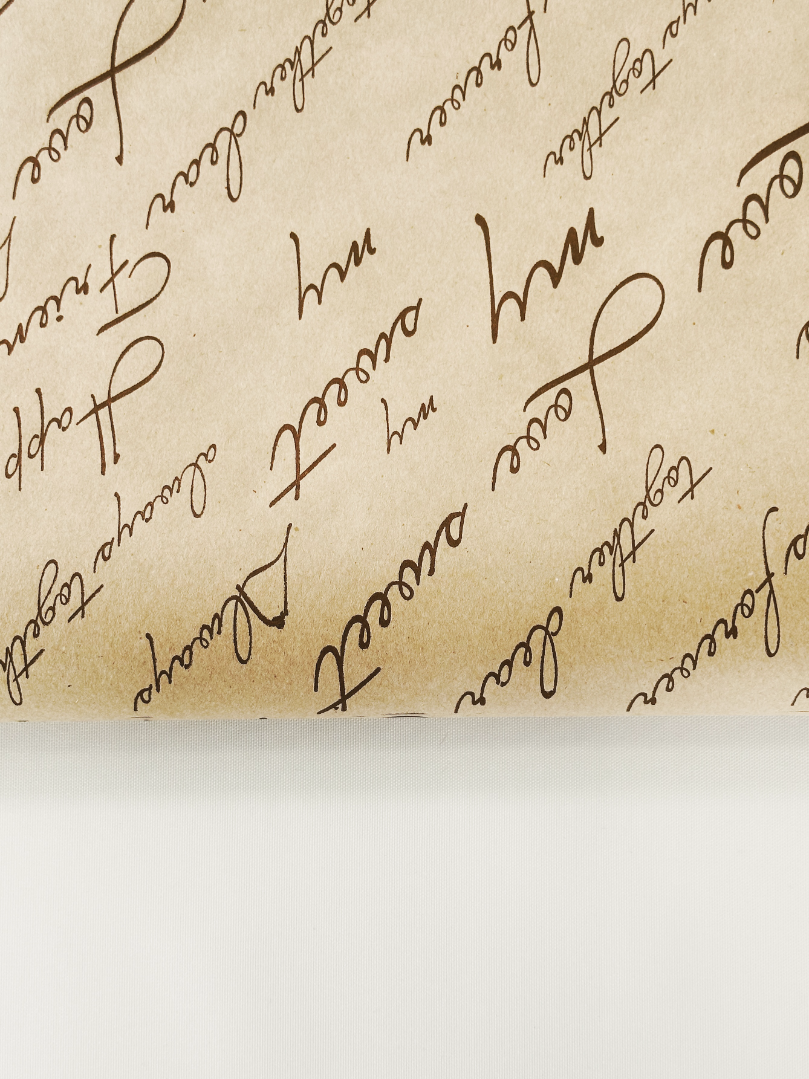 forever
together dear
ove
Love
sweet
my
together
my
Always
sweet
forever
my
always togeth
together dear
Happ
Frien
Love